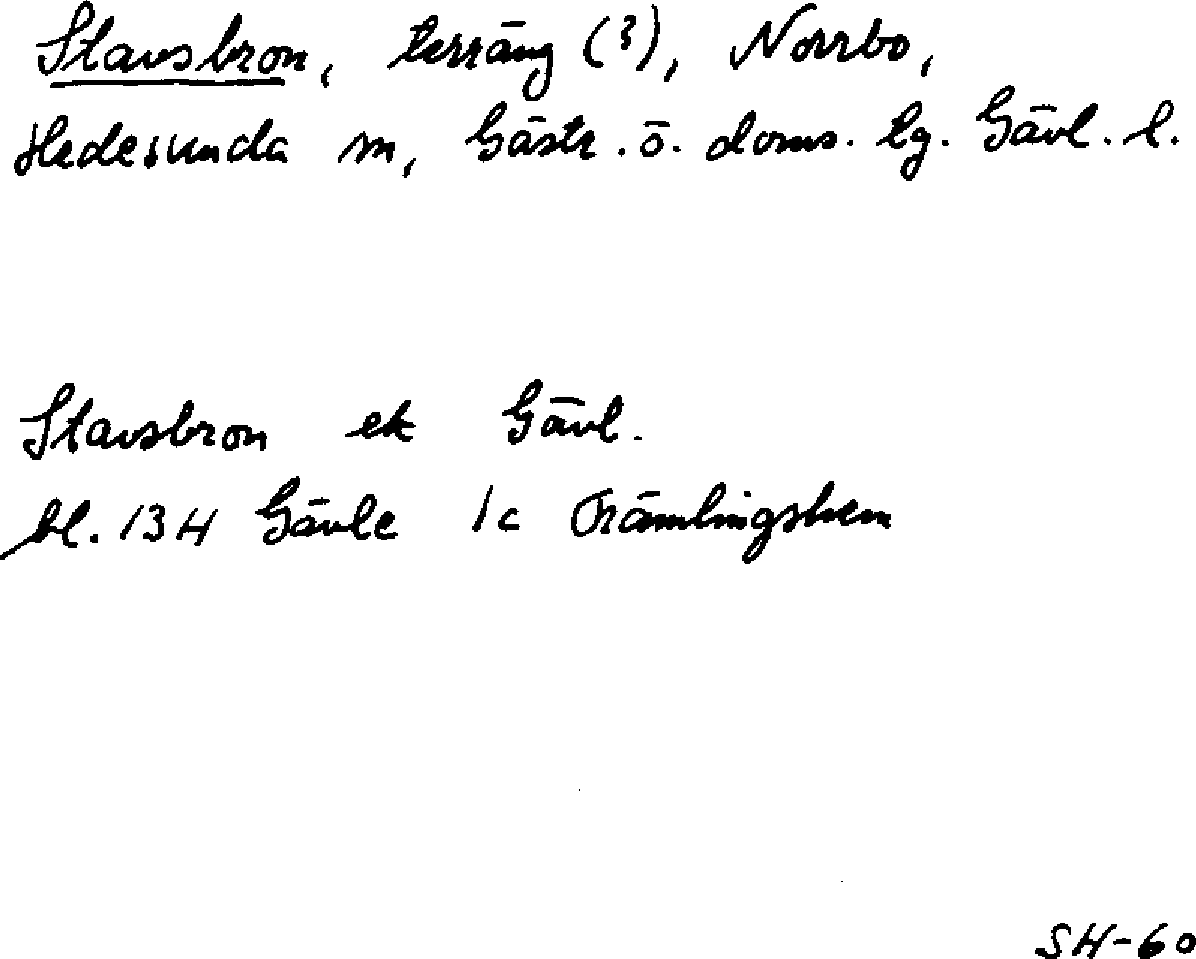 Stavsbron, terräng (?), Norrbo,
Hedesunda sn, Gästr. ö. doms. tg. Gävl. l.
Stavsbron ek Gävl.
bl. 134 Gävle 1c Främlingshem
SH-60